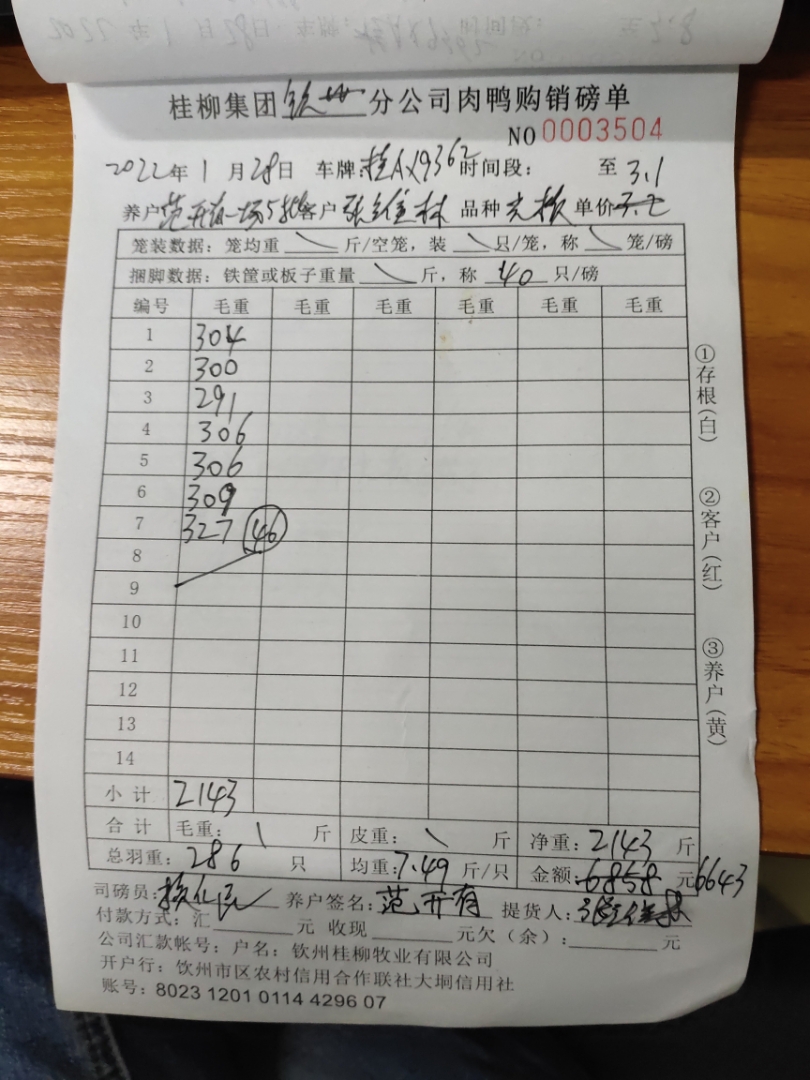 桂柳集团钦州分公司肉鸭购销磅单
NO 0003504
2022年1月28日 车牌:桂AX9362 时间段: 至 3.1
养户范开有一场5批 客户张维林 品种 单价3.2
笼装数据: 笼均重 \ 斤/空笼, 装 \ 只/笼, 称 \ 笼/磅
捆脚数据: 铁筐或板子重量 \ 斤, 称 40 只/磅
编号 毛重 毛重 毛重 毛重 毛重 毛重
1 304
2 300
3 291
4 306
5 306
6 309
7 327 46
8
9
10
11
12
13
14
小计 2143
合计 毛重: \ 斤 皮重: \ 斤 净重: 2143 斤
总羽重: 286 只 均重: 7.49 斤/只 金额: 6858 元 6643
司磅员: 养户签名: 范开有 提货人:
付款方式: 汇 元 收现 元欠(余): 元
公司汇款帐号: 户名: 钦州桂柳牧业有限公司
开户行: 饮州市区农村信用合作联社大垌信用社
账号: 8023 1201 0114 4296 07
①存根(白)
②客户(红)
③养户(黄)